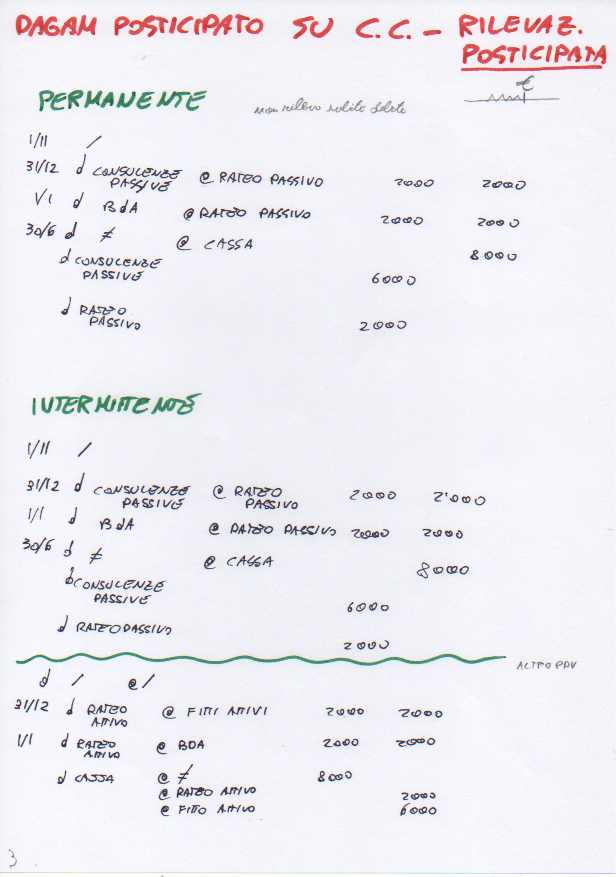 DAGAM POSTICIPATO SU C.C. - RILEVAZ.
POSTICIPATA
€
PERMANENTE
non rilevo subito
1/11 /
31/12 d CONSULENZE @ RATEO PASSIVO 2000 2000
PASSIVE
1/1 d BDA @ RATEO PASSIVO 2000 2000
30/6 d ≠ @ CASSA 8000
d CONSULENZE
PASSIVE 6000
d RATEO
PASSIVO 2000
INTERMITTENTE
1/11 /
31/12 d CONSULENZE @ RATEO 2000 2'000
PASSIVE PASSIVO
1/1 d BDA @ RATEO PASSIVO 2000 2000
30/6 d ≠ @ CASSA 8000
d CONSULENZE
PASSIVE 6000
d RATEO PASSIVO 2000
ALTRO PDV
d / @ /
31/12 d RATEO @ FITTI ATTIVI 2000 2000
ATTIVO
1/1 d RATEO @ BDA 2000 2000
ATTIVO
d CASSA @ ≠ 8000
@ RATEO ATTIVO 2000
@ FITTO ATTIVO 6000
3